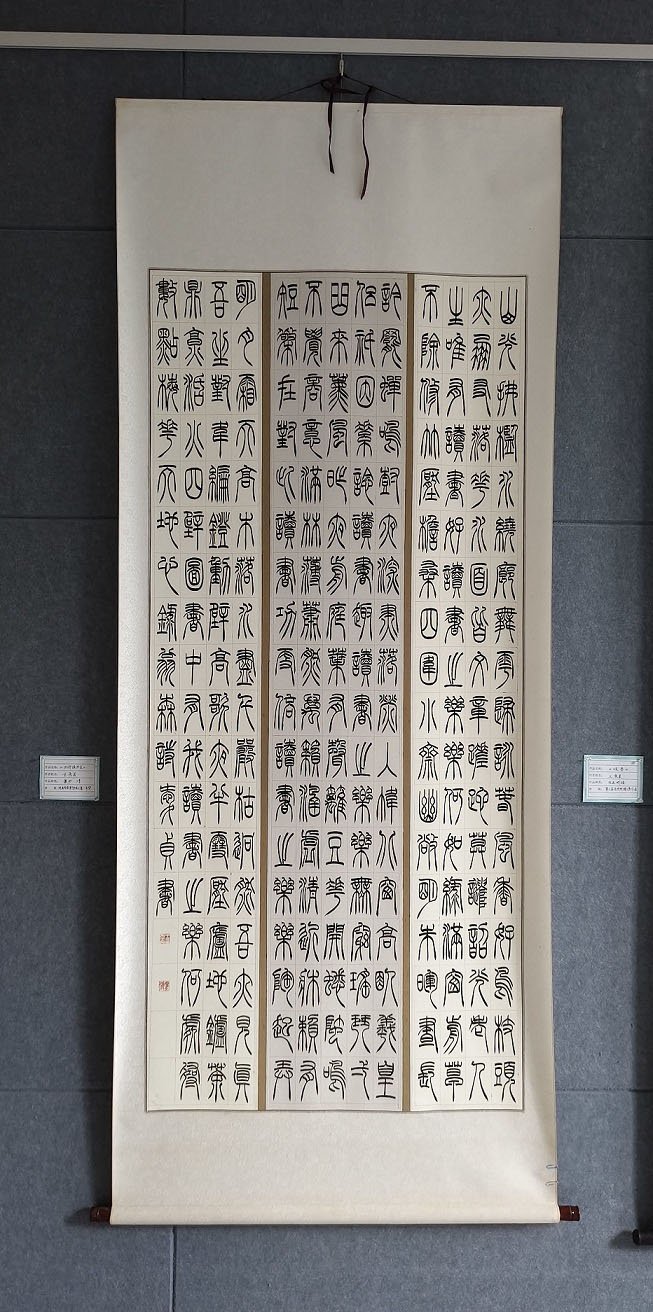 山光拂檻水繞廊舞雩歸詠春風香好鳥枝頭
亦朋友落花水面皆文章蹉跎莫謹韶光老人
生唯有讀書好讀書之樂樂何如綠滿窗前草
不除修竹壓檐桑四圍小齋幽敞明朱暉晝長
吟罷蟬鳴樹夜深燼落螢入幃北窗高臥羲皇
侶祇因素諗讀書趣讀書之樂樂無窮瑤琴一
曲來薰風昨夜前庭葉有聲籬豆花開蟋蟀鳴
不覺商意滿林薄蕭然萬籟涵虛清近床賴有
短檠在對此讀書功更倍讀書之樂樂陶起弄
明月霜天高木落水盡千巖枯迥然吾亦見真
吾坐對韋編鐙動壁高歌夜半雪壓廬地鑪茶
鼎烹活火四壁圖書中有我讀書之樂何處尋
數點梅花天地心錄翁森詩志貞書